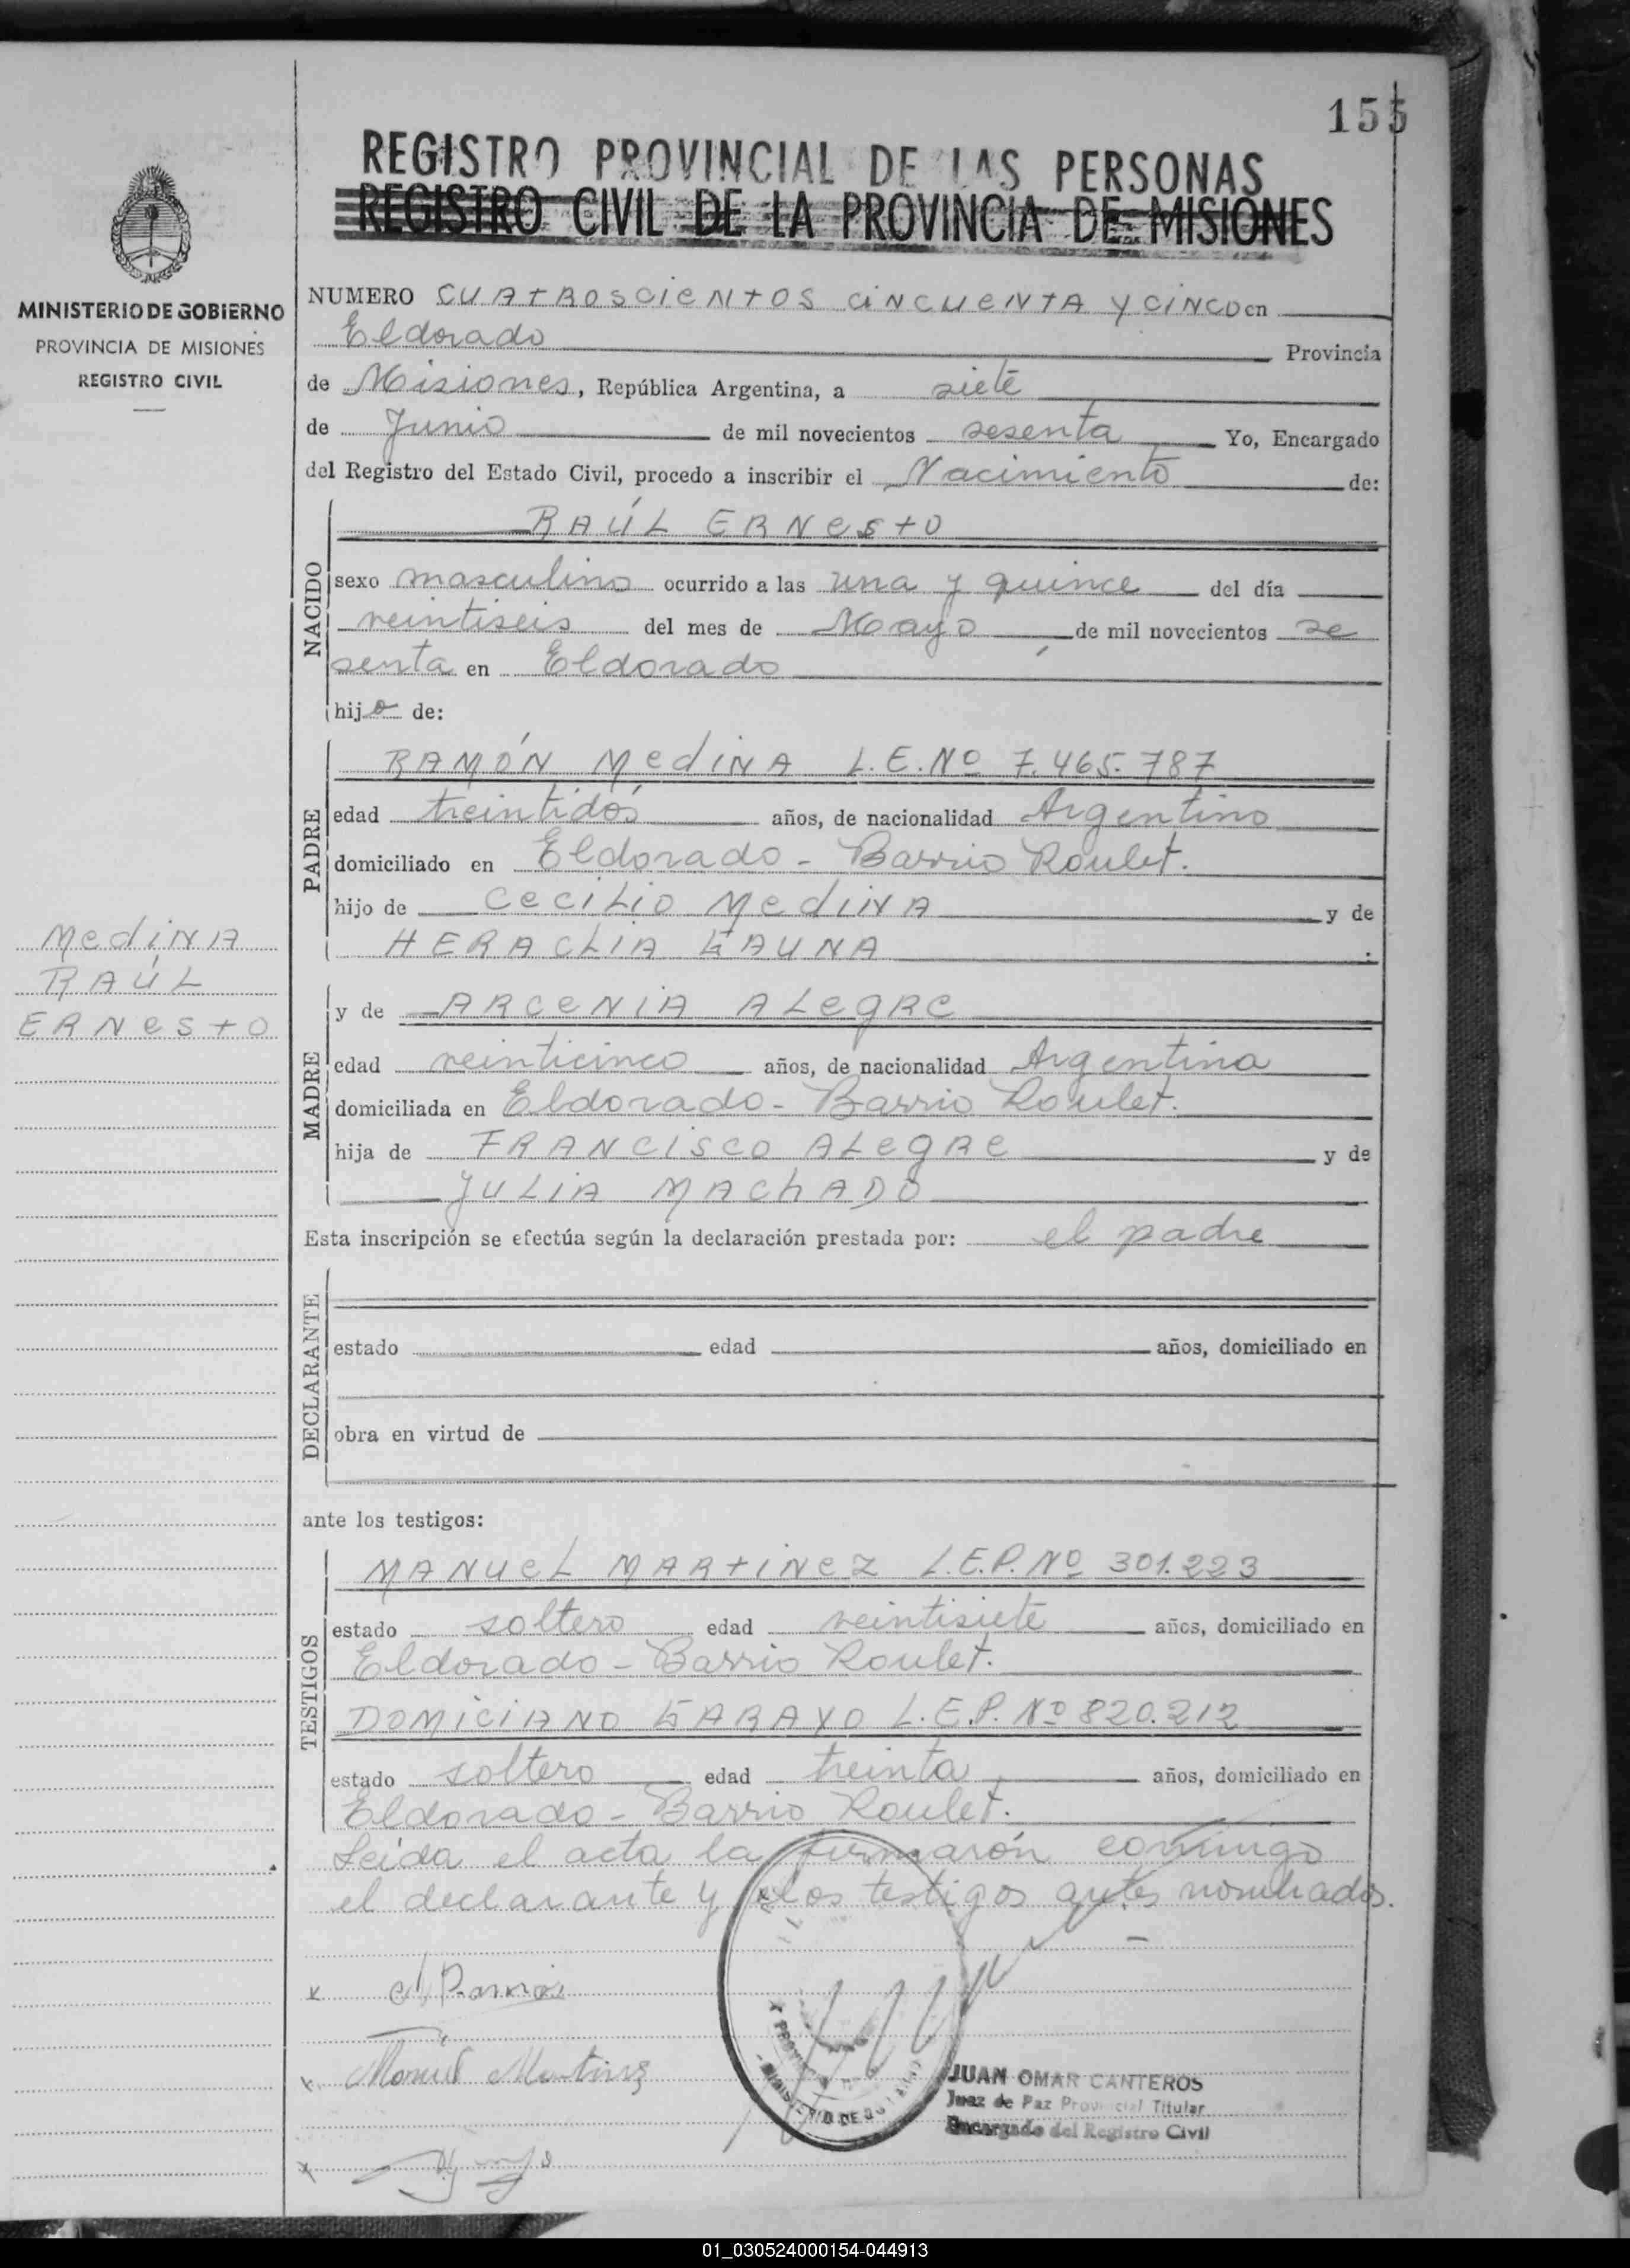 155
REGISTRO PROVINCIAL DE LAS PERSONAS
REGISTRO CIVIL DE LA PROVINCIA DE MISIONES
MINISTERIO DE GOBIERNO
PROVINCIA DE MISIONES
REGISTRO CIVIL
NUMERO CUATROSCIENTOS CINCUENTA Y CINCO en
Eldorado Provincia
de Misiones, República Argentina, a siete
de Junio de mil novecientos sesenta Yo, Encargado
del Registro del Estado Civil, procedo a inscribir el Nacimiento de:
NACIDO
RAÚL ERNESTO
sexo masculino ocurrido a las una y quince del día
veintiseis del mes de Mayo de mil novecientos se
senta en Eldorado
hijo de:
PADRE
RAMÓN MEDINA L.E.Nº 7.465.787
edad treintidós años, de nacionalidad Argentino
domiciliado en Eldorado - Barrio Roulet.
hijo de CECILIO MEDINA y de
HERACLIA GAUNA.
MEDINA
RAÚL
ERNESTO
MADRE
y de ARCENIA ALEGRE
edad veinticinco años, de nacionalidad Argentina
domiciliada en Eldorado - Barrio Roulet.
hija de FRANCISCO ALEGRE y de
JULIA MACHADO
Esta inscripción se efectúa según la declaración prestada por: el padre
DECLARANTE
estado edad años, domiciliado en
obra en virtud de
ante los testigos:
TESTIGOS
MANUEL MARTINEZ L.E.P.Nº 301.223
estado soltero edad veintisiete años, domiciliado en
Eldorado - Barrio Roulet.
DOMICIANO GARAYO L.E.P. Nº 820.212
estado soltero edad treinta años, domiciliado en
Eldorado - Barrio Roulet.
Leida el acta la firmarón conmigo
el declarante y los testigos antes nombrados.
JUAN OMAR CANTEROS
Juez de Paz Provincial Titular
Encargado del Registro Civil
01_030524000154-044913